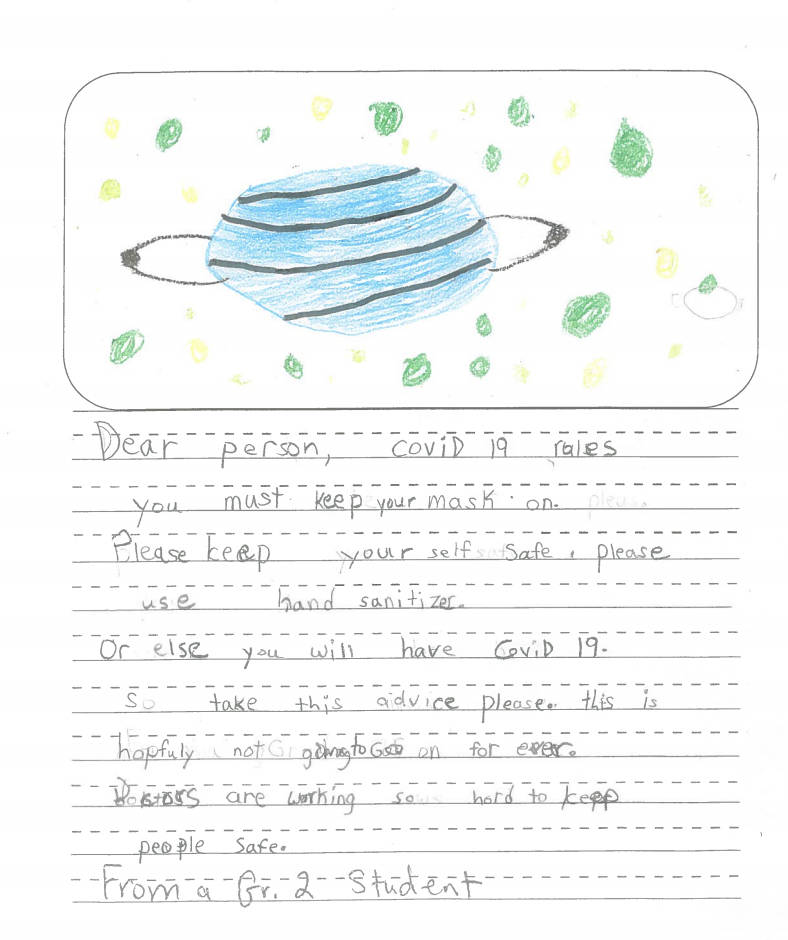 Dear person, coviD 19 rales
you must keep your mask on.
Please keep your self safe. please
use hand sanitizer.
Or else you will have CoviD 19.
So take this aidvice please. this is
hopfuly not going to Go on for ever.
Doctors are working so hord to keep
people safe.
From a Gr. 2 Student